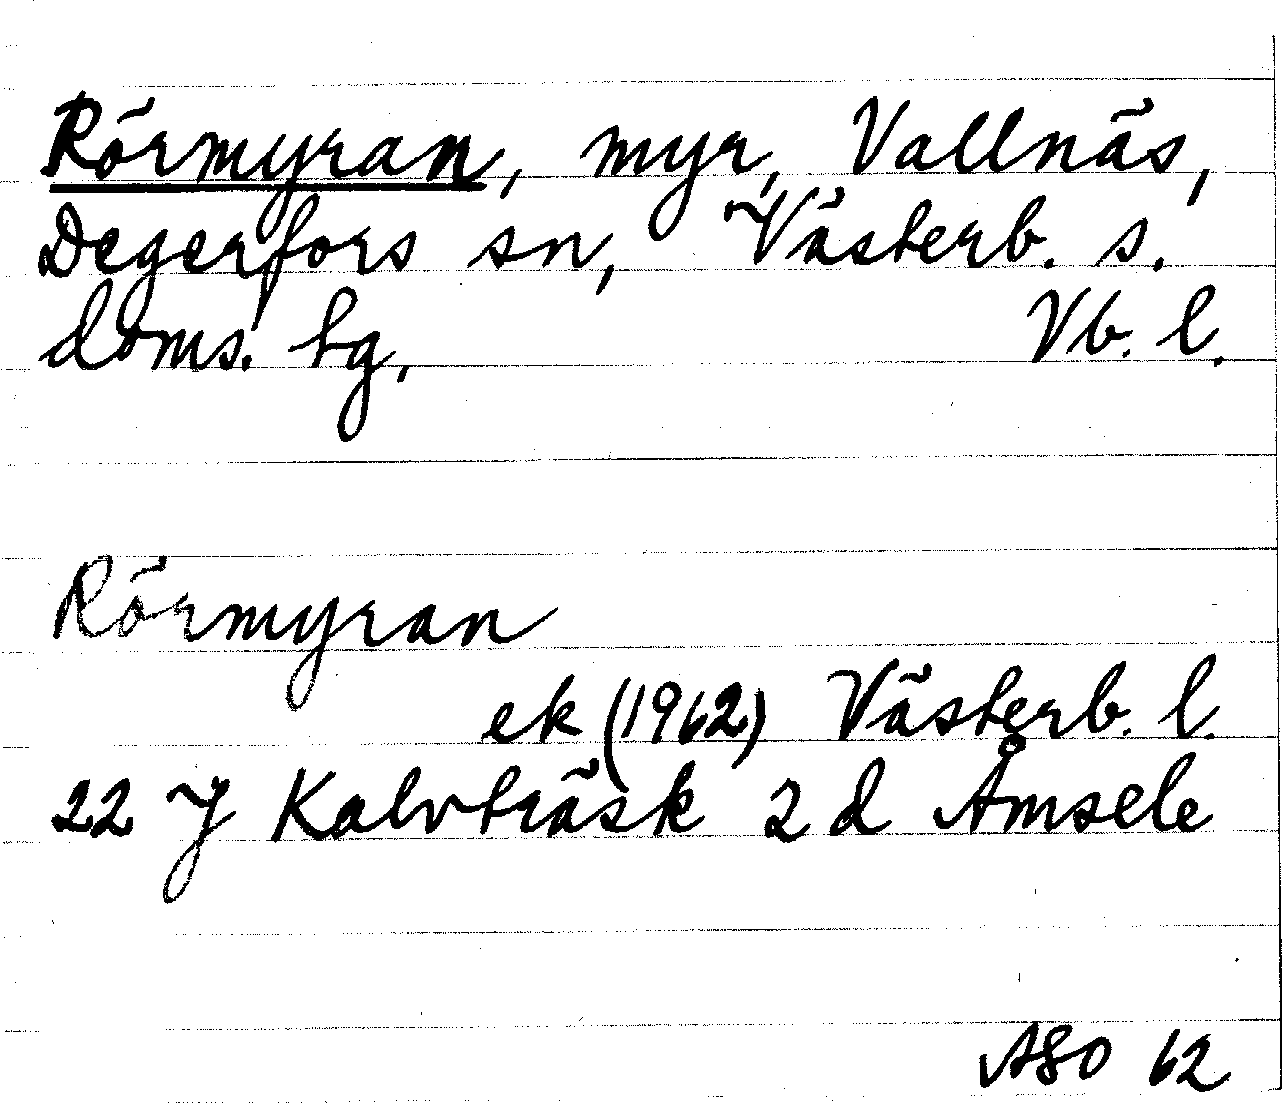 Rörmyran, myr, Vallnäs,
Degerfors sn, Västerb. s.
doms. tg, Vb. l.
Rörmyran
ek (1962) Västerb. l.
22 J Kalvträsk 2 d Åmsele
ASO 62